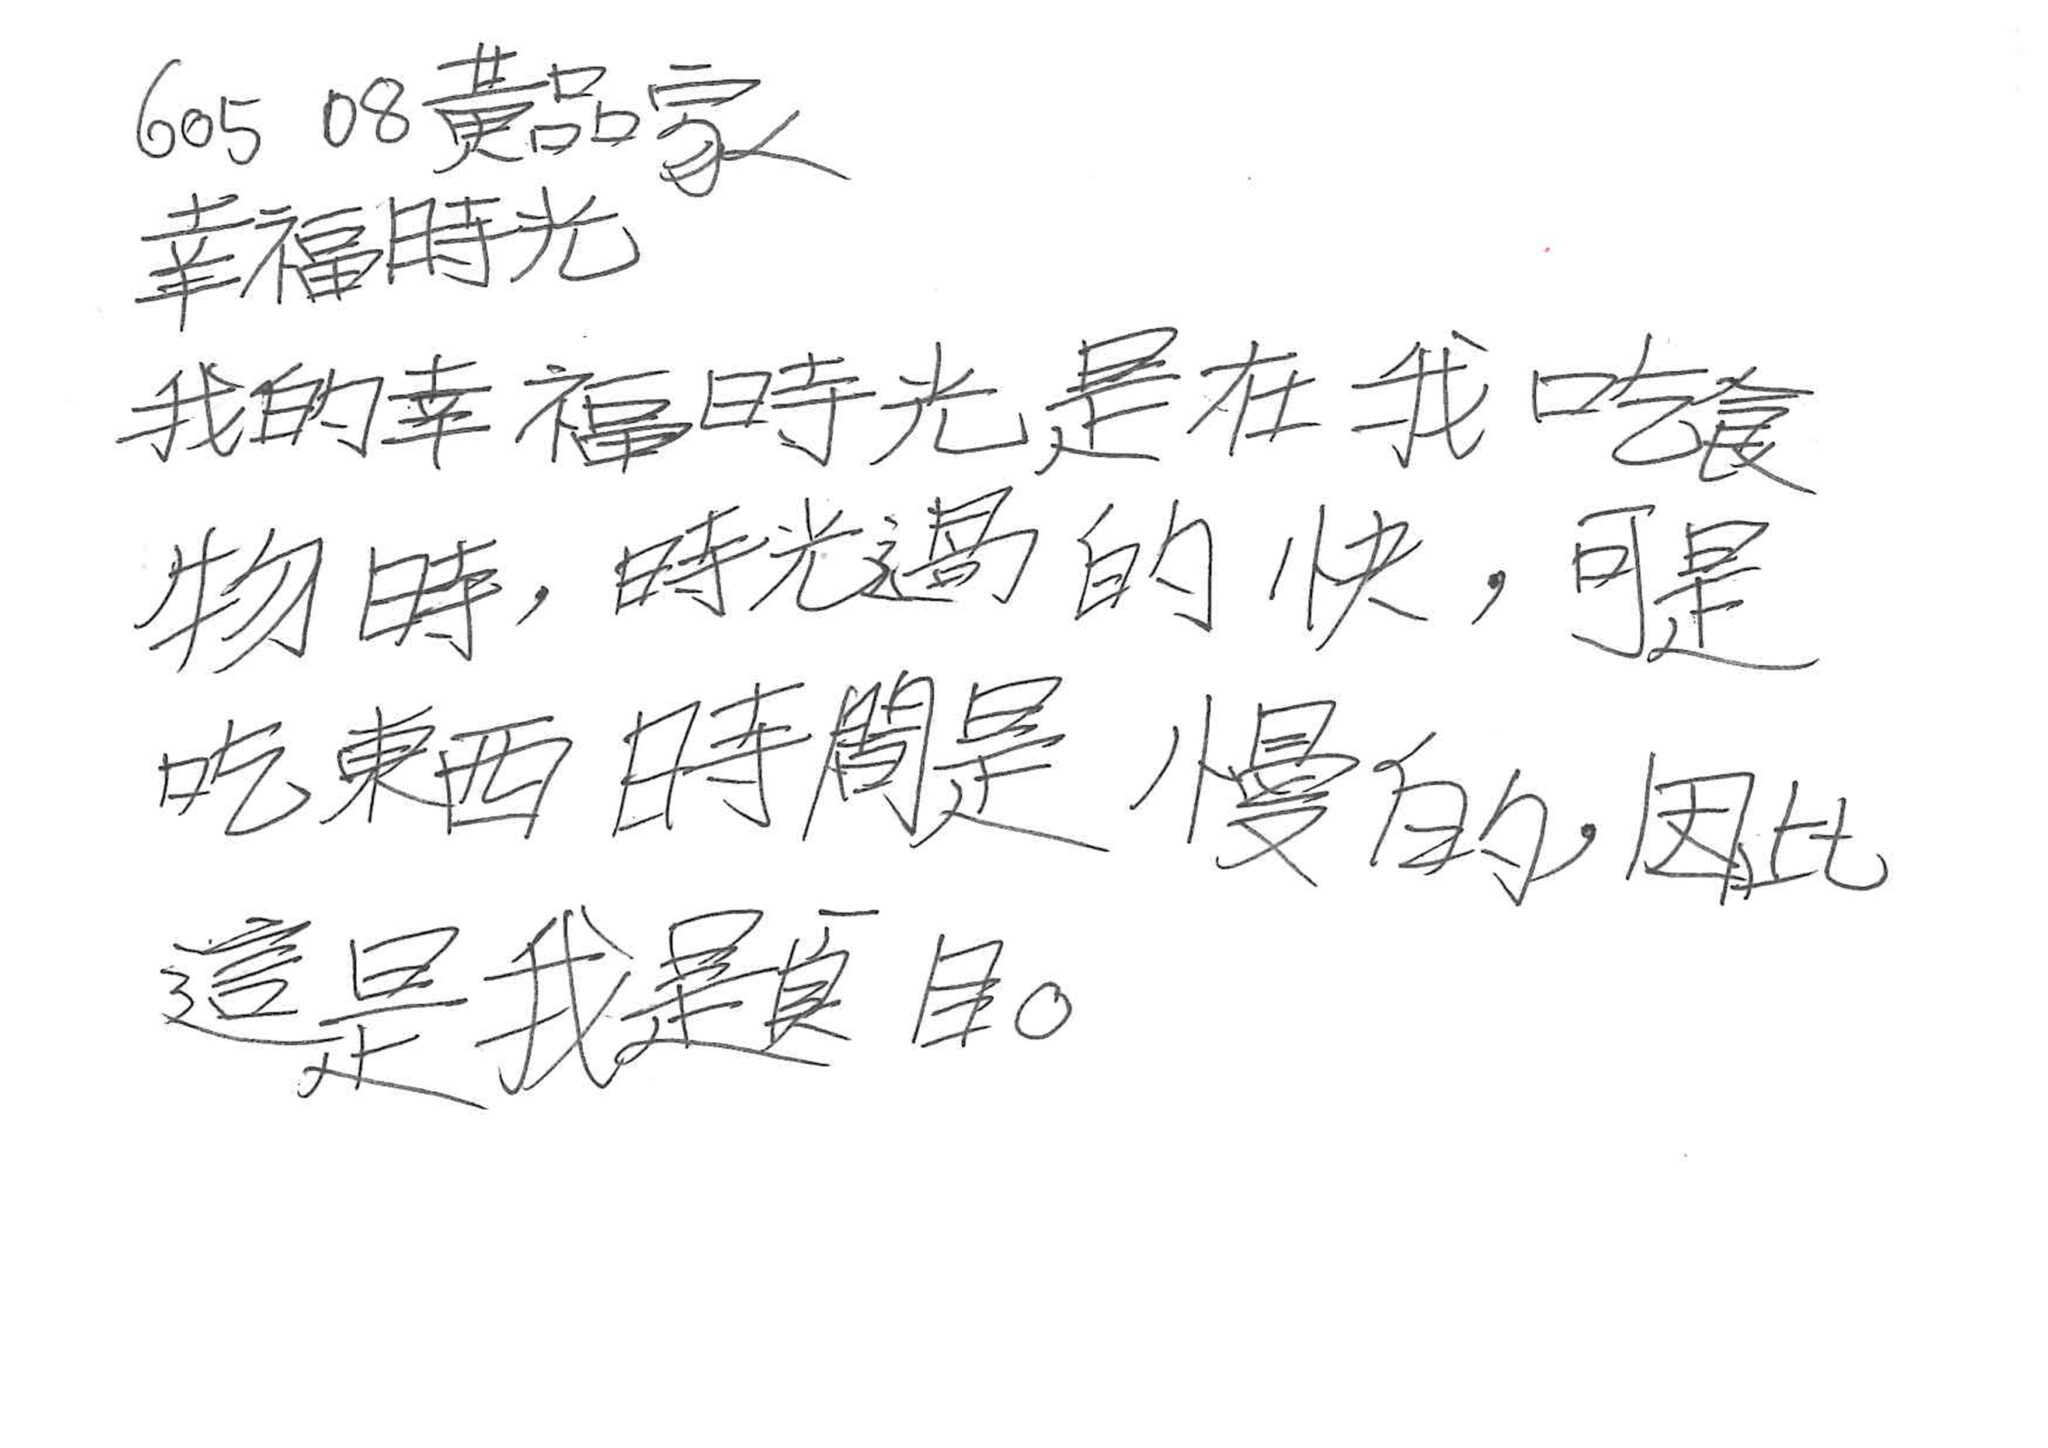 605 08黃品家
幸福時光
我的幸福時光是在我吃食
物時,時光過的快,可是
吃東西時間是慢的,因此
這是我題目。